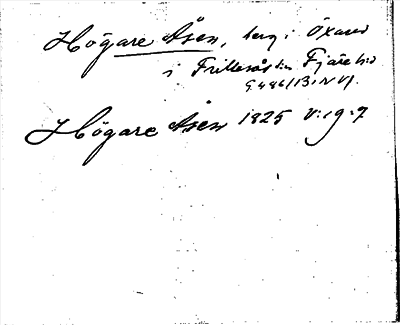 Högare Åsen, berg i Öxared
i Frillesås sn Fjäre hd
G486/13i NV/.
Högare Åsen 1825 V:19:7